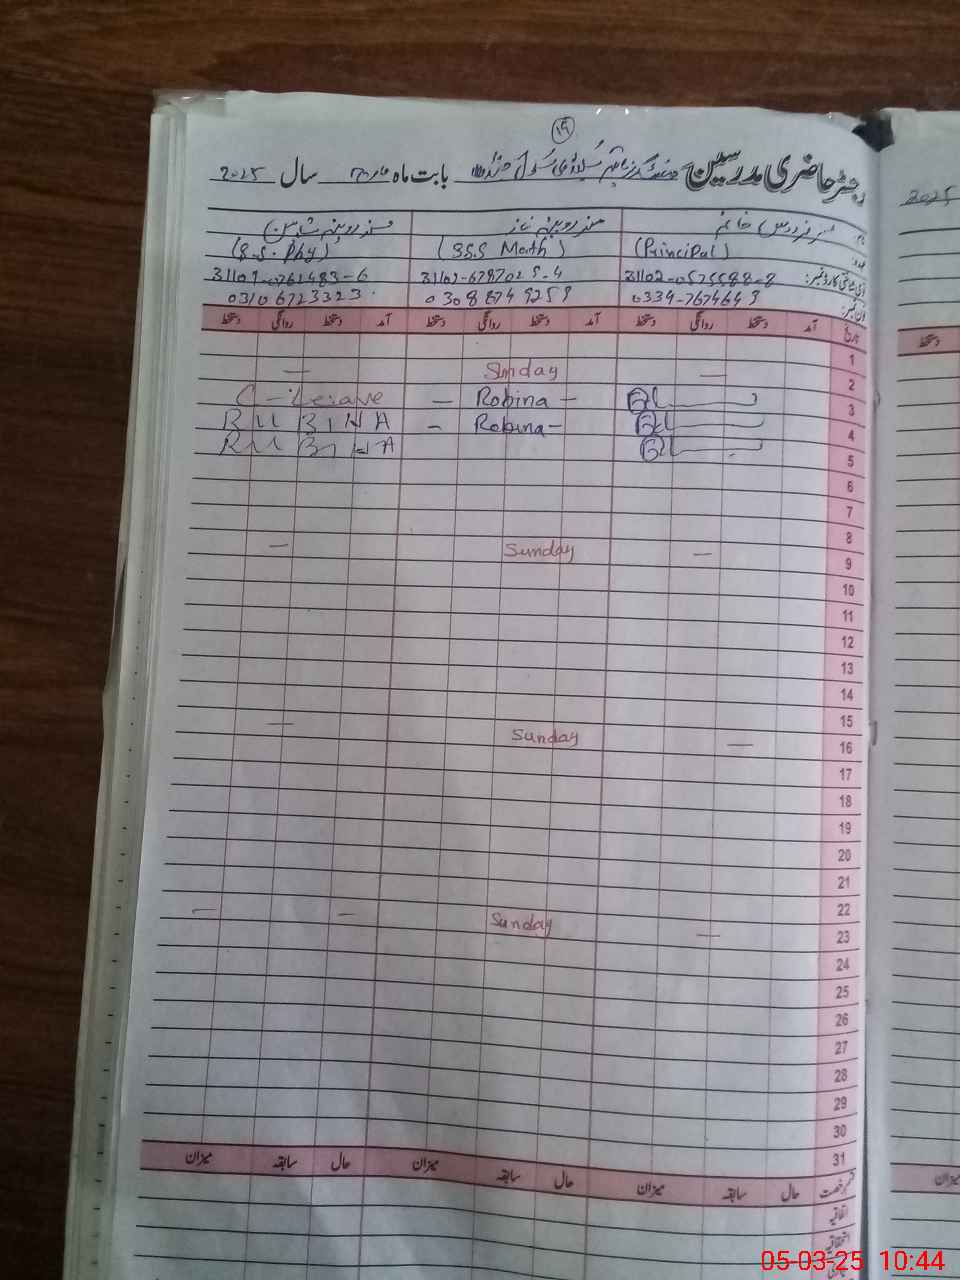 ۱۹
رجسٹر حاضری مدرسین گورنمنٹ گرلز ہائیر سیکنڈری سکول بابت ماہ مارچ سال 2025
2025
نام: مسز فردوس خانم مسز روبینہ ناز مسز روبینہ شاہین
عہدہ: (Principal) (SSS Math) (S.S. Phy)
شناختی کارڈ نمبر: 31102-0575588-8 31102-6787025-4 31101-0761483-6
فون نمبر: 0334-7674643 03088749259 03106723323
تاریخ آمد دستخط روانگی دستخط آمد دستخط روانگی دستخط آمد دستخط روانگی دستخط
دستخط
1
2 — Sunday —
3 — Robina — C-Leave
4 — Robina — RUBINA
5 RUBINA
6
7
8
9 — Sunday —
10
11
12
13
14
15
16 — Sunday —
17
18
19
20
21
22
23 — Sunday — —
24
25
26
27
28
29
30
31
قسم رخصت حال سابقہ میزان حال سابقہ میزان حال سابقہ میزان
میزان
اتفاقیہ
استحقاقیہ
05-03-25 10:44